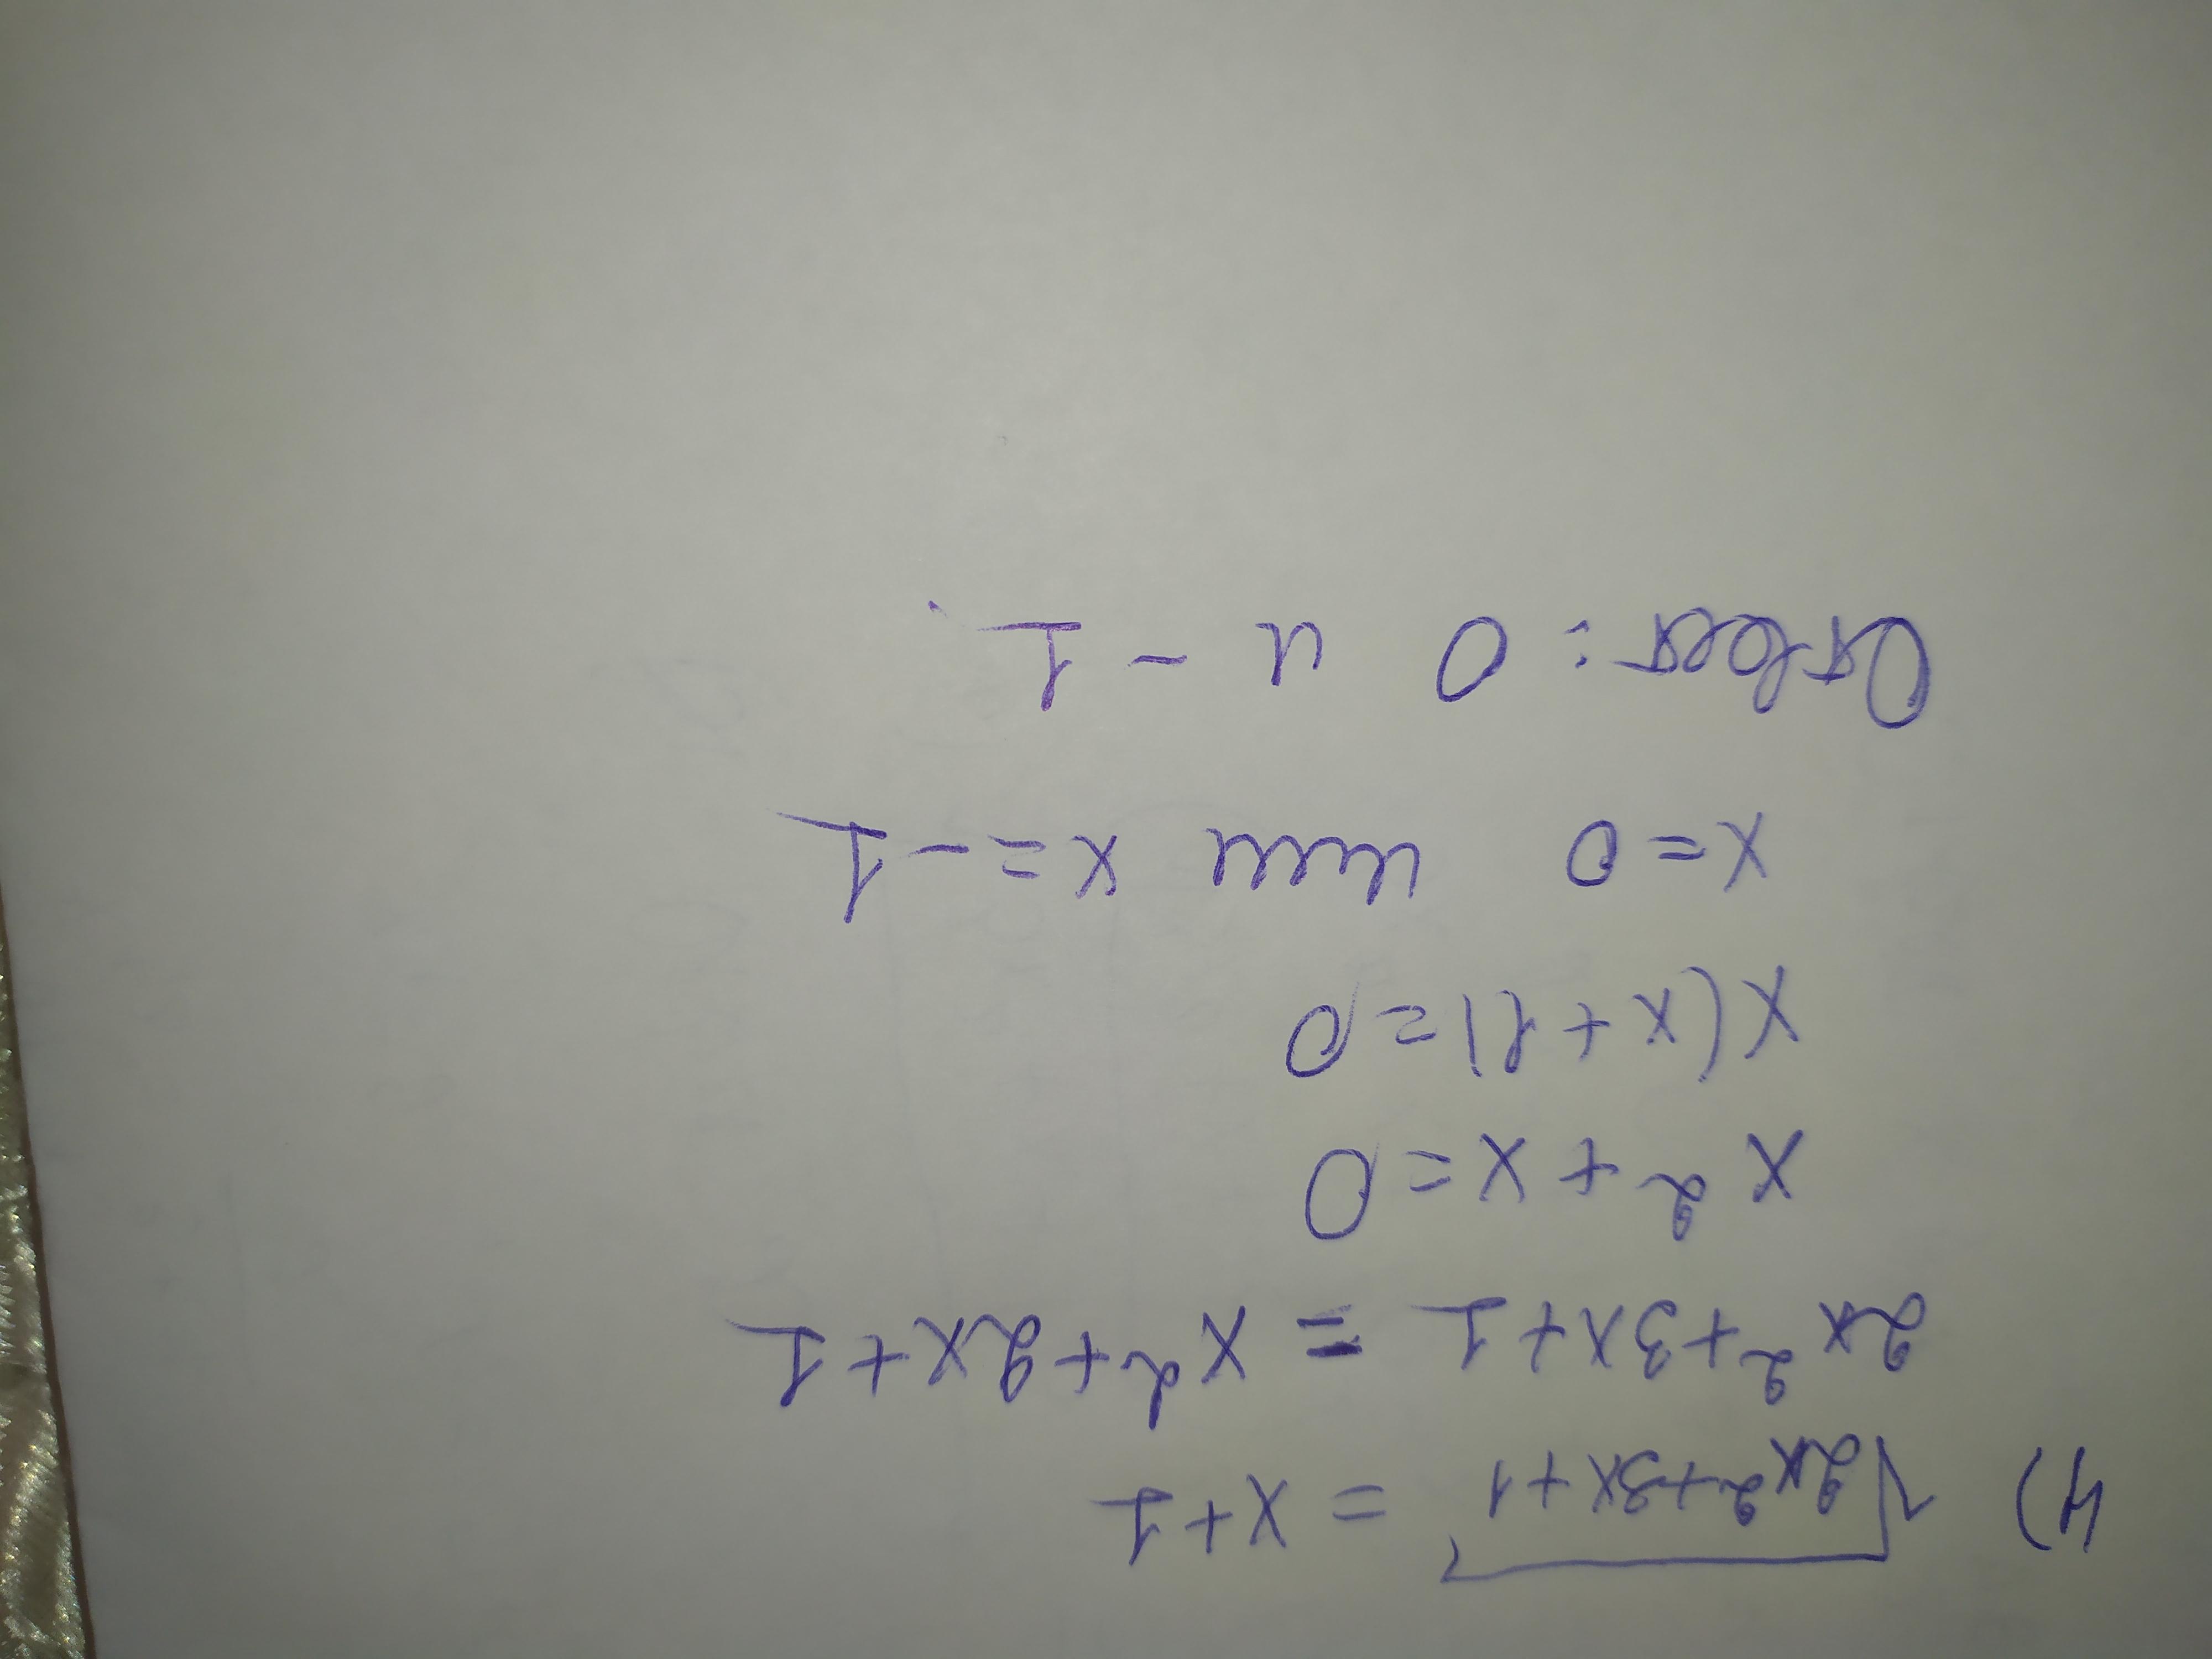 4) √2x²+3x+1 = x+1
2x²+3x+1 = x²+2x+1
x²+x=0
x(x+1)=0
x=0 или x=-1
Ответ: 0 и -1.